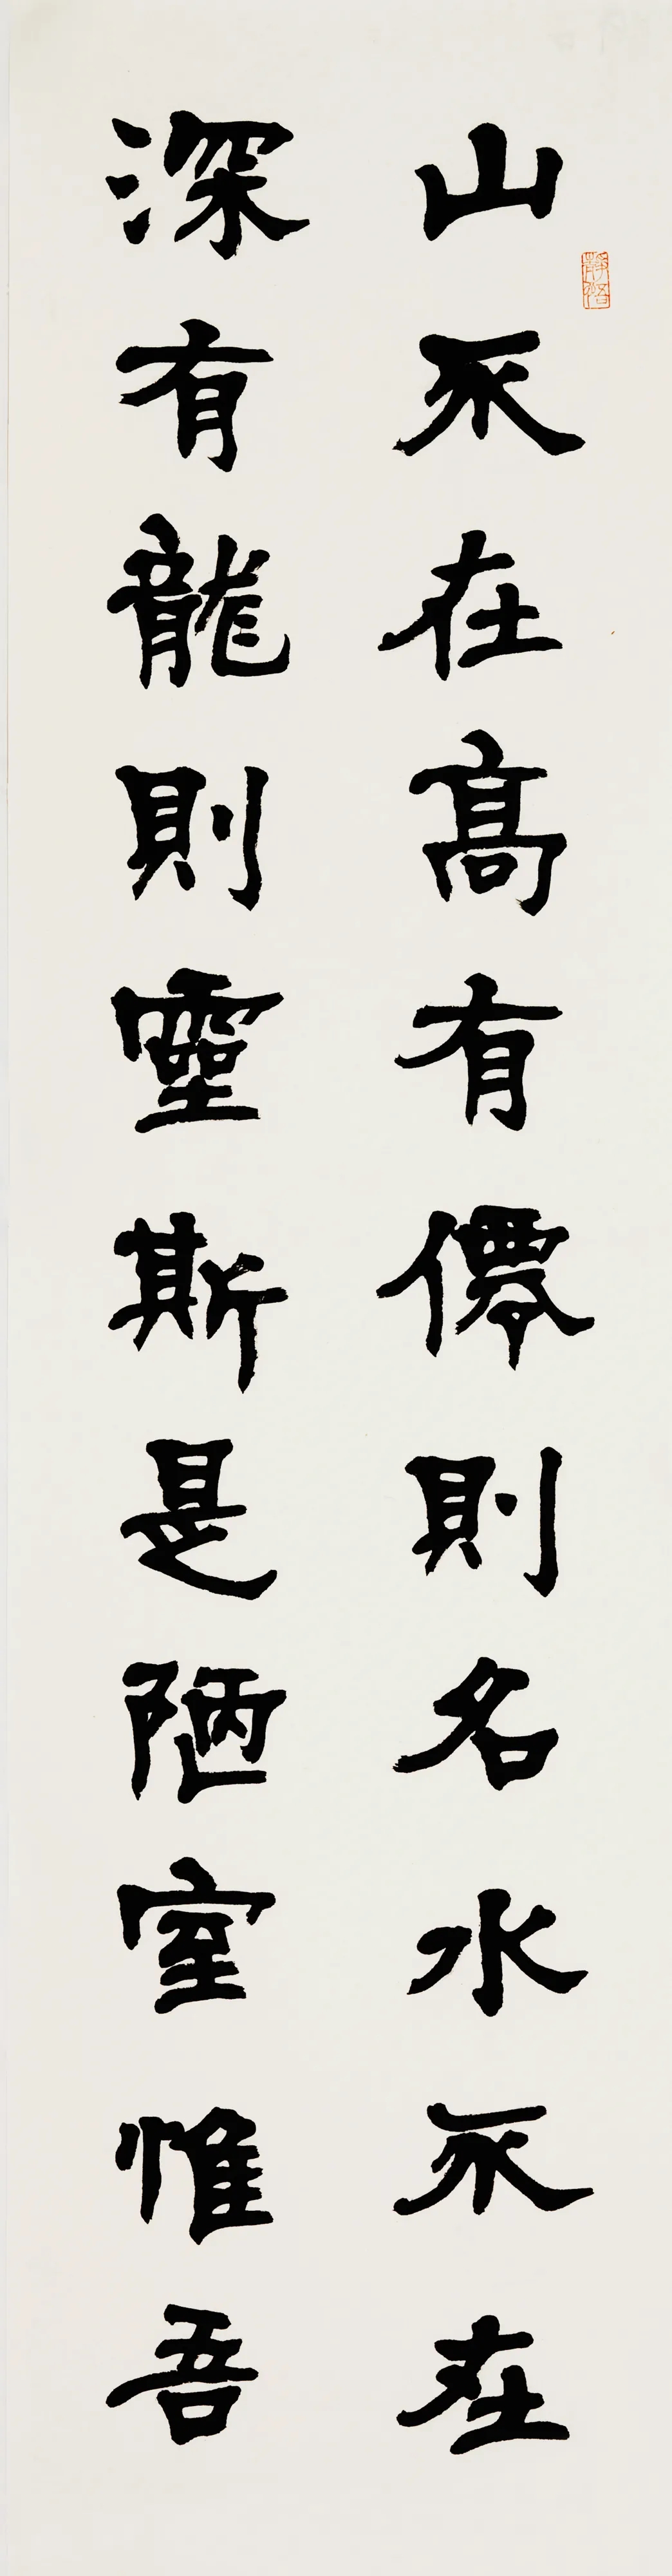 山不在高有僊則名水不在
深有龍則靈斯是陋室惟吾
靜悟